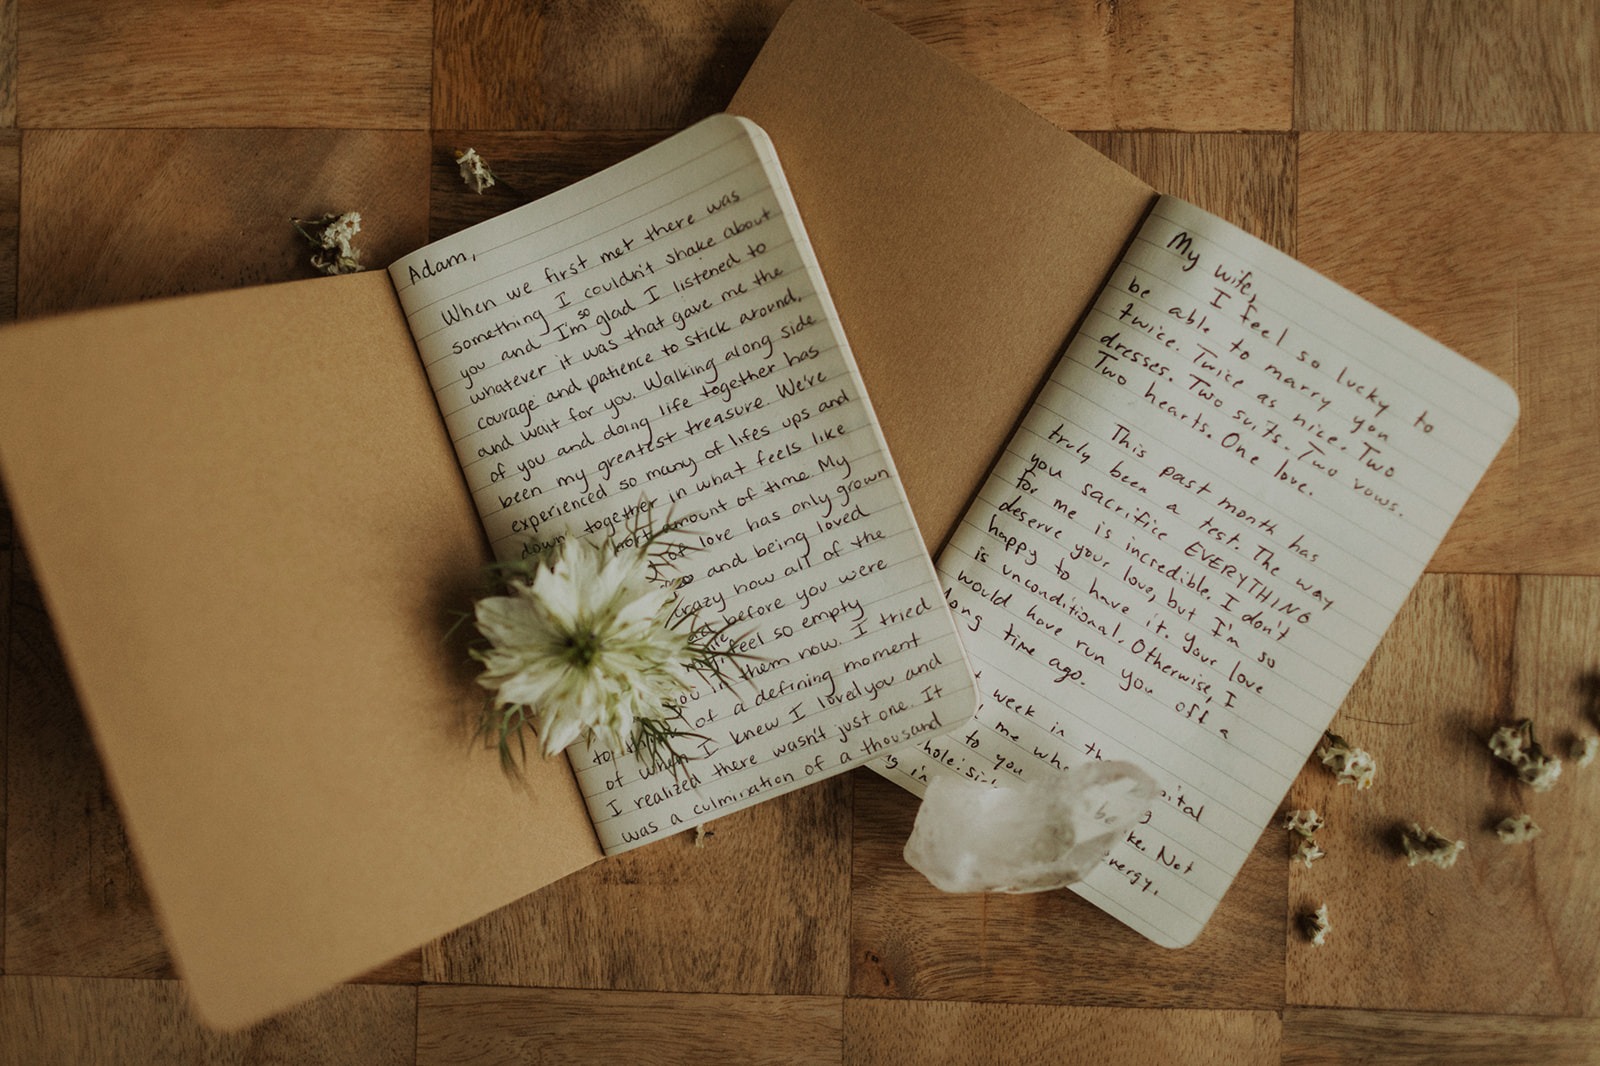 Adam,
When we first met there was
something I couldn't shake about
you and I'm so glad I listened to
whatever it was that gave me the
courage and patience to stick around,
and wait for you. Walking along side
of you and doing life together has
been my greatest treasure. We're
experienced so many of lifes ups and
down together in what feels like
hort amount of time. My
of love has only grown
and being loved
crazy how all of the
before you were
feel so empty
you in them now. I tried
to of a defining moment
of when I knew I loved you and
I realized there wasn't just one. It
was a culmination of a thousand
My wife,
I feel so lucky to
be able to marry you
twice. Twice as nice. Two
dresses. Two suits. Two vows.
Two hearts. One love.
This past month has
truly been a test. The way
you sacrifice EVERYTHING
for me is incredible. I don't
deserve your love, but I'm so
happy to have it. Your love
is unconditional. Otherwise, I
would have run you off a
long time ago.
week in th pital
me wh
to you be
hole ke. Not
in nergy.